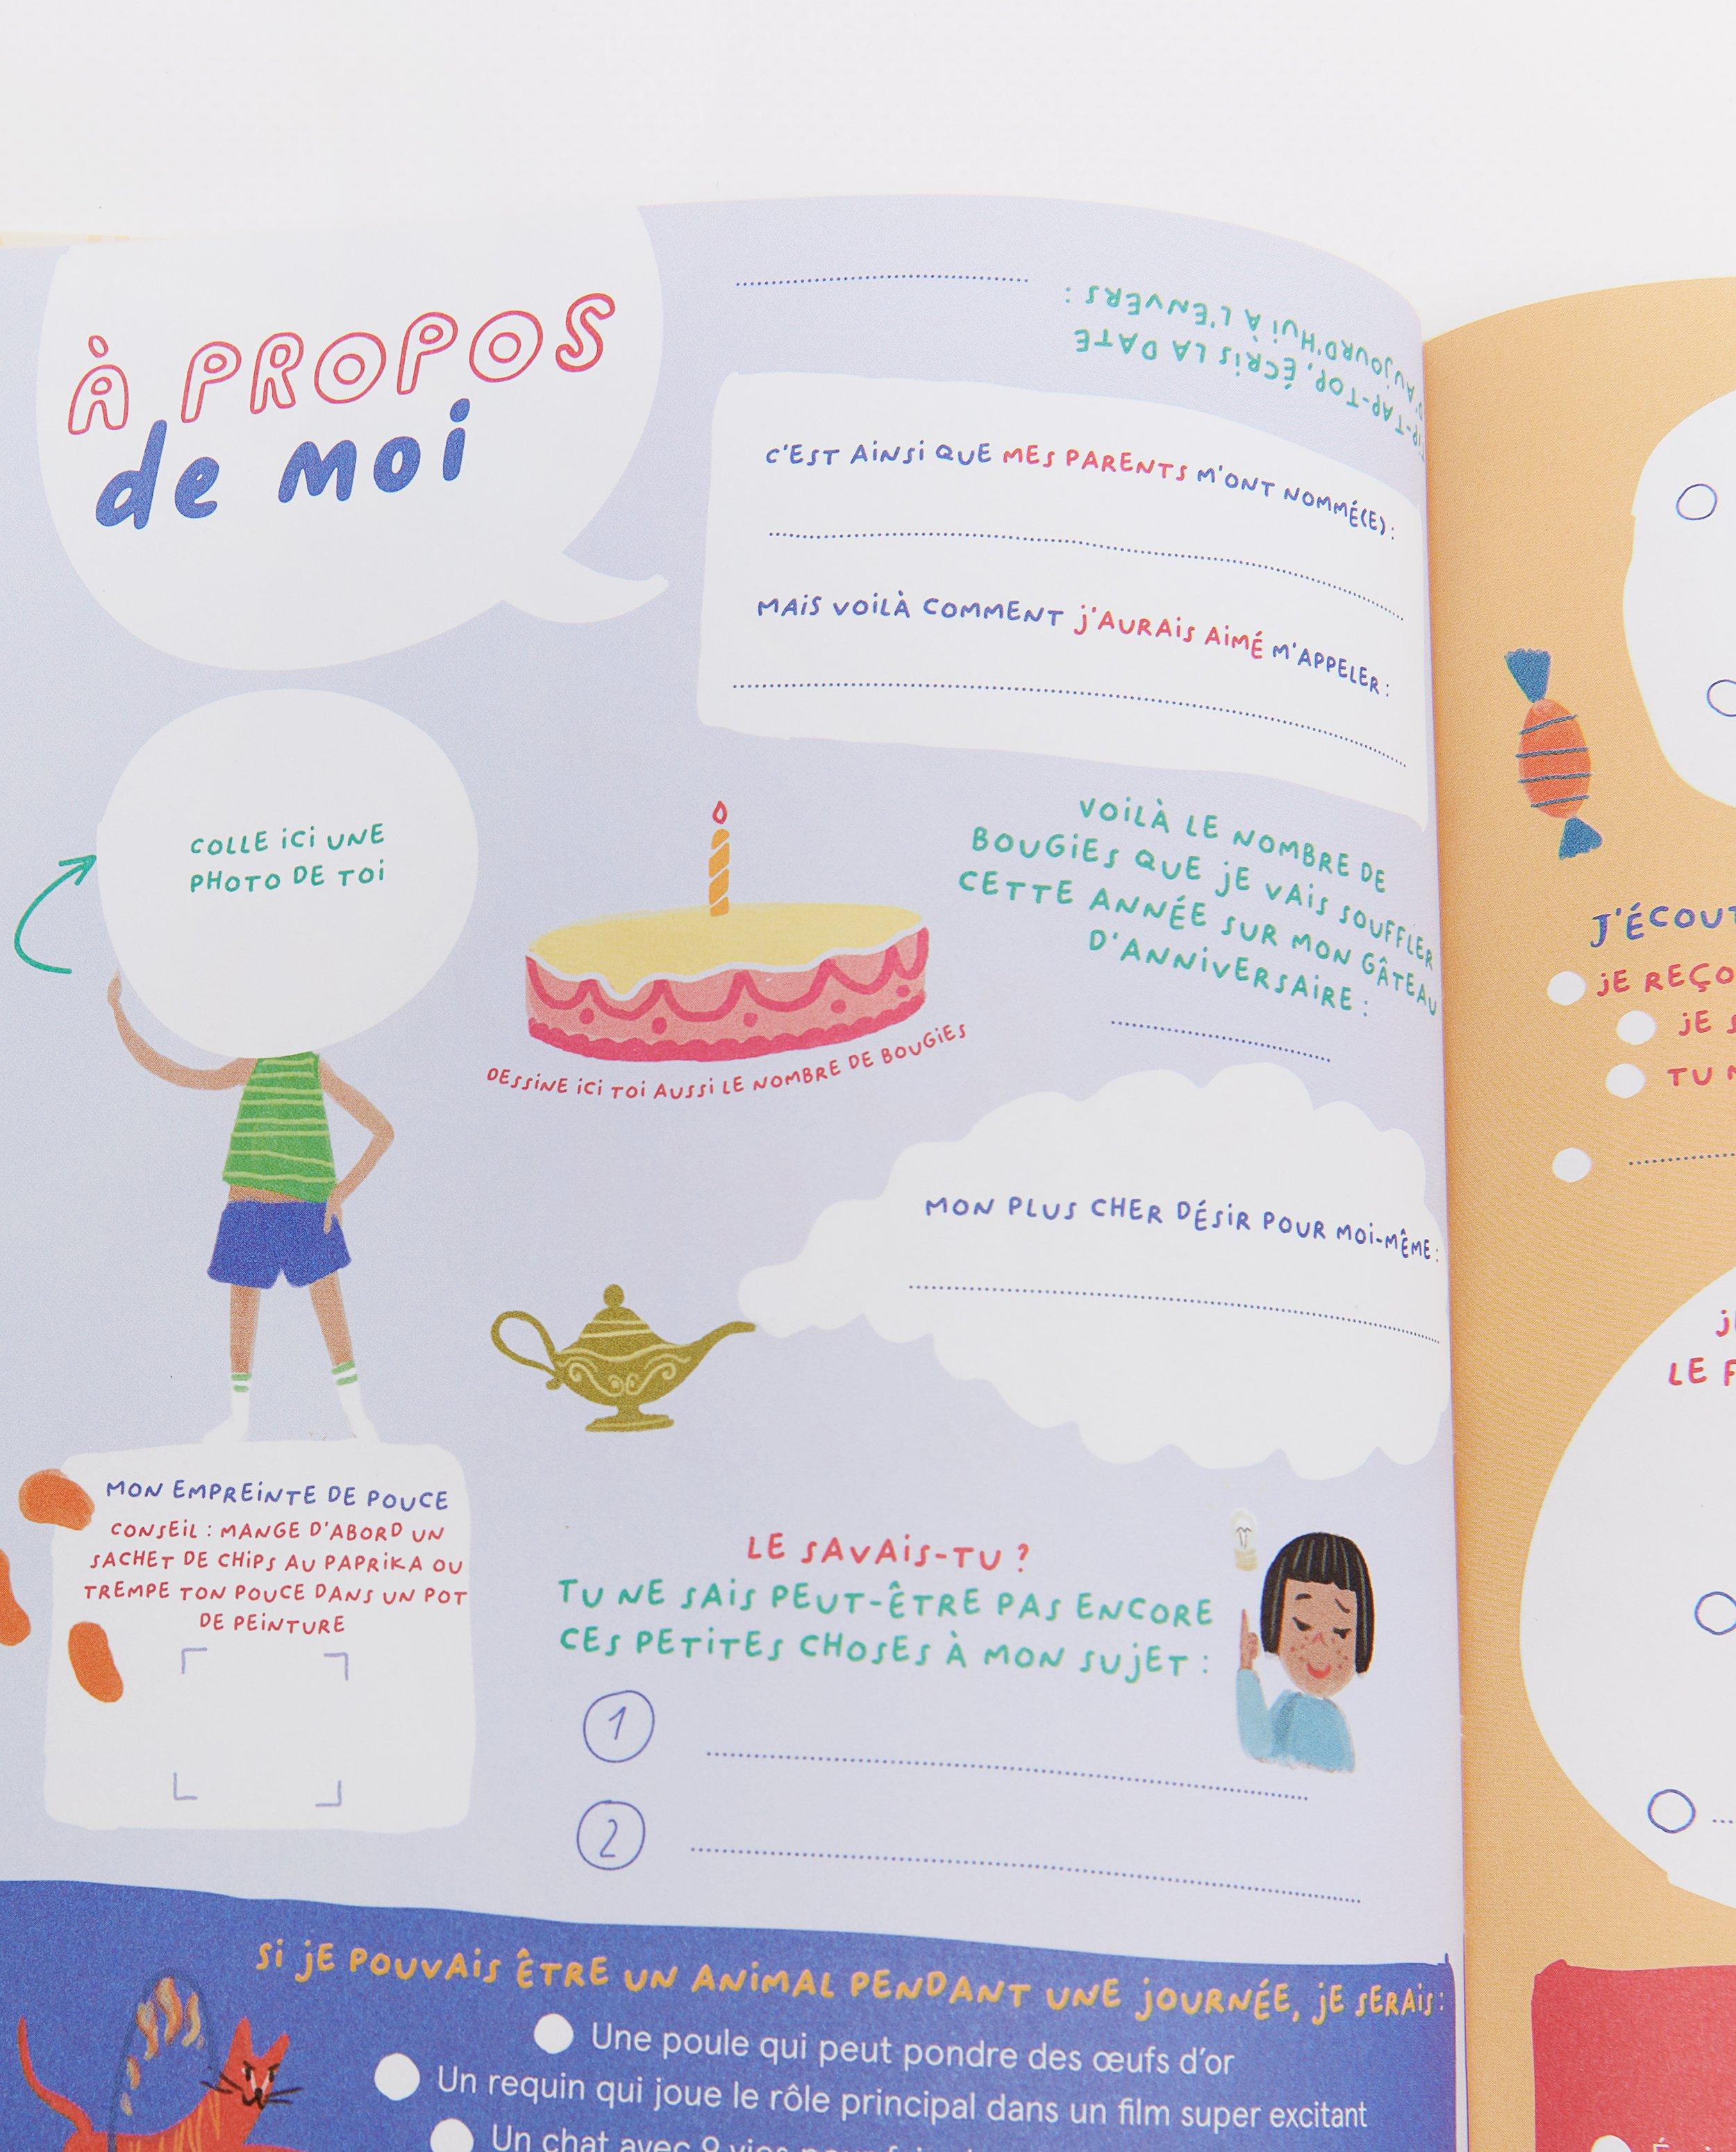 À PROPOS
de moi
TIP-TAP-TOP, ÉCRIS LA DATE
D'AUJOURD'HUI À L'ENVERS :
C'EST AINSI QUE MES PARENTS M'ONT NOMMÉ(E) :
MAIS VOILÀ COMMENT J'AURAIS AIMÉ M'APPELER :
COLLE ICI UNE
PHOTO DE TOI
VOILÀ LE NOMBRE DE
BOUGIES QUE JE VAIS SOUFFLER
CETTE ANNÉE SUR MON GÂTEAU
D'ANNIVERSAIRE :
DESSINE ICI TOI AUSSI LE NOMBRE DE BOUGIES
MON PLUS CHER DÉSIR POUR MOI-MÊME :
MON EMPREINTE DE POUCE
CONSEIL : MANGE D'ABORD UN
SACHET DE CHIPS AU PAPRIKA OU
TREMPE TON POUCE DANS UN POT
DE PEINTURE
LE SAVAIS-TU ?
TU NE SAIS PEUT-ÊTRE PAS ENCORE
CES PETITES CHOSES À MON SUJET :
1
2
SI JE POUVAIS ÊTRE UN ANIMAL PENDANT UNE JOURNÉE, JE SERAIS :
Une poule qui peut pondre des œufs d'or
Un requin qui joue le rôle principal dans un film super excitant
Un chat avec 9 vies
JE
TU
LE